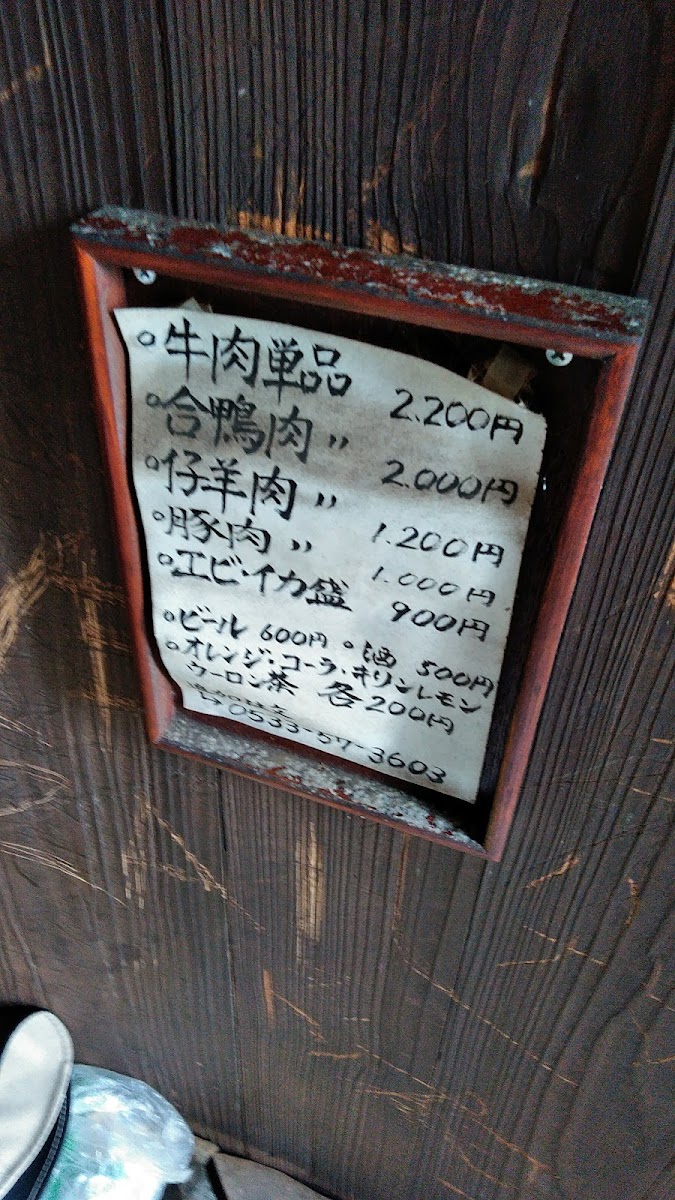 ○牛肉単品 2.200円
○合鴨肉 〃 2.000円
○仔羊肉 〃 1.200円
○豚肉 〃 1.000円
○エビ・イカ盛 900円
○ビール 600円 ○酒 500円
○オレンジ・コーラ・キリンレモン
ウーロン茶 各200円
0533-57-3603